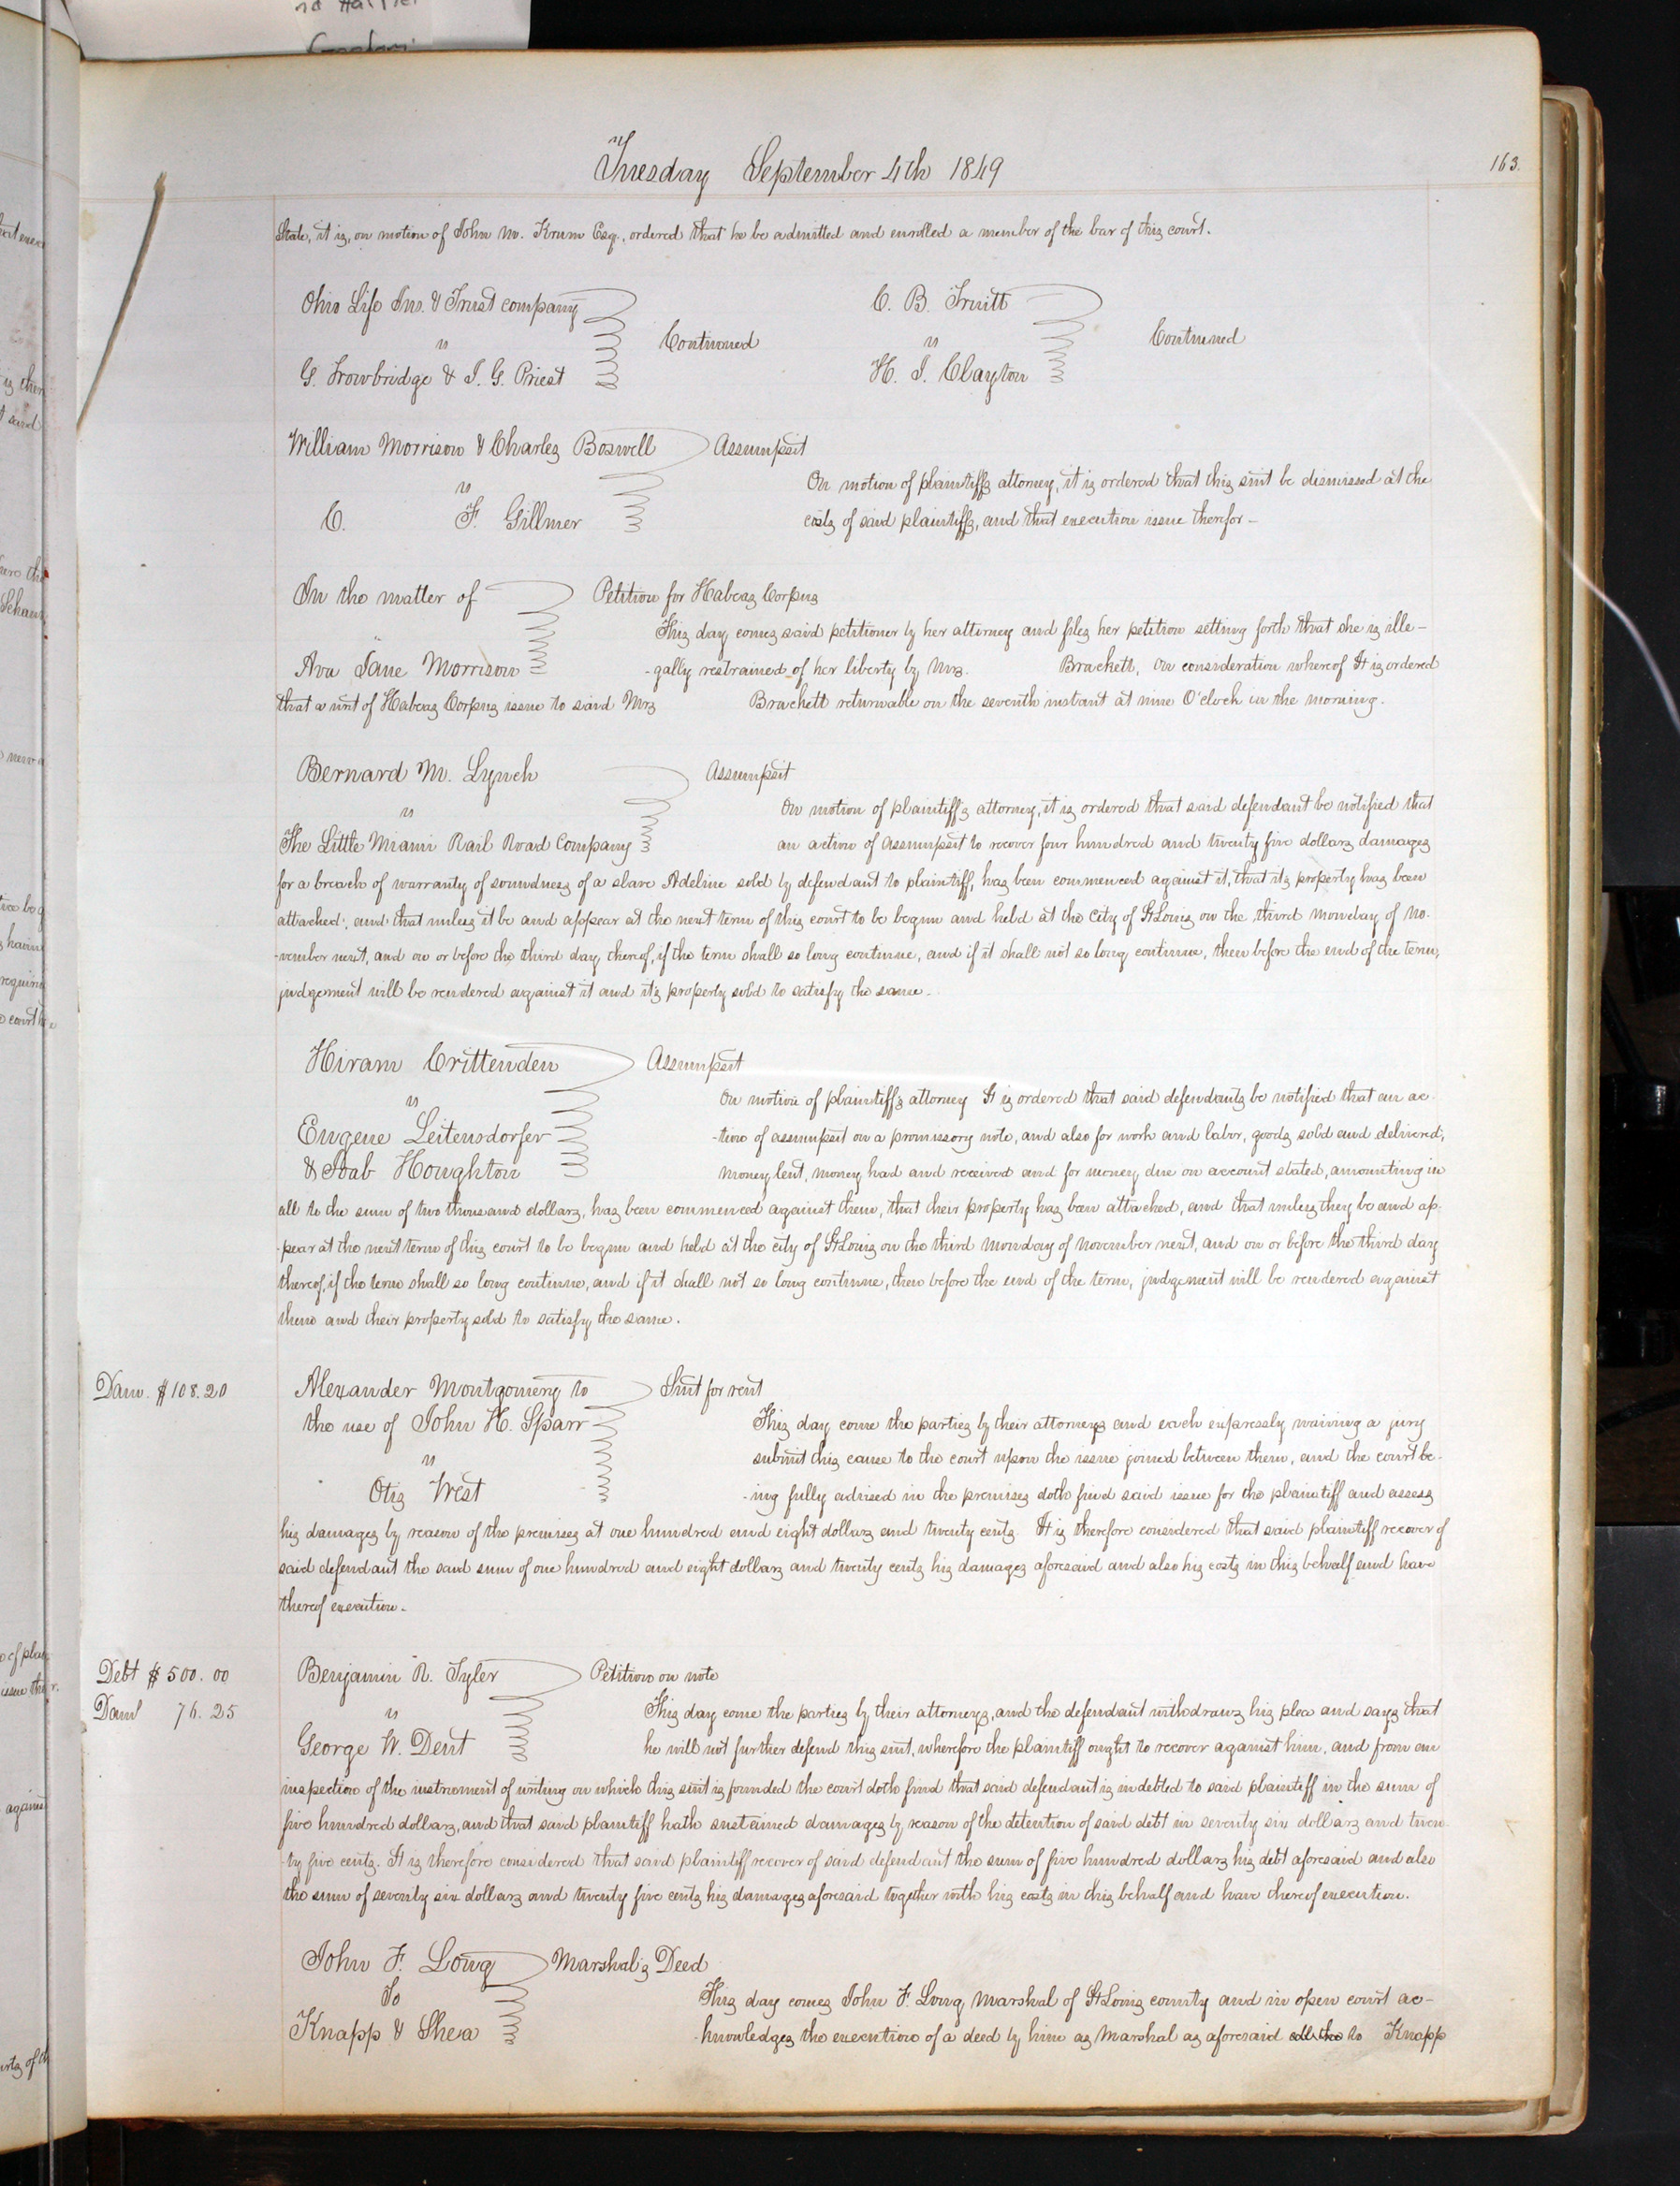 Tuesday September 4th 1849
163.
State, it is, on motion of John M. Krum Esq., ordered that he be admitted and enrolled a member of the bar of this court.
Ohio Life Ins. & Trust company
vs
Continued
G. Trowbridge & J. G. Priest
C. B. Truitt
vs
Continued
H. J. Clayton
William Morrison & Charles Boswell Assumpsit
On motion of plaintiffs attorney, it is ordered that this suit be dismissed at the
vs
C. F. Gillmer
costs of said plaintiffs, and that execution issue therefor-
In the matter of Petition for Habeas Corpus
This day comes said petitioner by her attorney and files her petition setting forth that she is ille-
Ava Jane Morrison -gally restrained of her liberty by Mrs. Brackett, on consideration whereof It is ordered
that a writ of Habeas Corpus issue to said Mrs Brackett returnable on the seventh instant at nine O'clock in the morning.
Bernard M. Lynch Assumpsit
vs On motion of plaintiff's attorney, it is ordered that said defendant be notified that
The Little Miami Rail Road Company an action of assumpsit to recover four hundred and twenty five dollars damages
for a breach of warranty of soundness of a slave Adeline sold by defendant to plaintiff, has been commenced against it, that its property has been
attached; and that unless it be and appear at the next term of this court to be begun and held at the City of St Louis on the third Monday of No-
-vember next, and on or before the third day thereof, if the term shall so long continue, and if it shall not so long continue, then before the end of the term,
judgement will be rendered against it and it's property sold to satisfy the same.
Hiram Crittenden Assumpsit
vs On motion of plaintiff's attorney It is ordered that said defendants be notified that an ac-
Eugene Leitensdorfer -tion of assumpsit on a promissory note, and also for work and labor, goods sold and delivered;
& Joab Houghton money lent, money had and received and for money due on account stated, amounting in
all to the sum of two thousand dollars, has been commenced against them, that their property has been attached, and that unless they be and ap-
-pear at the next term of this court to be begun and held at the city of St Louis on the third Monday of November next, and on or before the third day
thereof, if the term shall so long continue, and if it shall not so long continue, then before the end of the term, judgement will be rendered against
them and their property sold to satisfy the same.
Dam. $108.20
Alexander Montgomery to Suit for rent
the use of John H. Sparr This day come the parties by their attorneys and each expressly waiving a jury
vs submit this cause to the court upon the issue joined between them, and the court be-
Otis West -ing fully advised in the premises doth find said issue for the plaintiff and assess
his damages by reason of the premises at one hundred and eight dollars and twenty cents. It is therefore considered that said plaintiff recover of
said defendant the said sum of one hundred and eight dollars and twenty cents his damages aforesaid and also his costs in this behalf and have
thereof execution.
Debt $500.00
Dam 76.25
Benjamin R. Tyler Petition on note
vs This day come the parties by their attorneys, and the defendant withdraws his plea and says that
George W. Dent he will not further defend this suit, wherefore the plaintiff ought to recover against him, and from an
inspection of the instrument of writing on which this suit is founded the court doth find that said defendant is indebted to said plaintiff in the sum of
five hundred dollars, and that said plaintiff hath sustained damages by reason of the detention of said debt in seventy six dollars and twen-
-ty five cents. It is therefore considered that said plaintiff recover of said defendant the sum of five hundred dollars his debt aforesaid and also
the sum of seventy six dollars and twenty five cents his damages aforesaid together with his costs in this behalf and have thereof execution.
John F. Long Marshal's Deed
To This day comes John F. Long Marshal of St Louis county and in open court ac-
Knapp & Shea -knowledges the execution of a deed by him as Marshal as aforesaid to Knapp